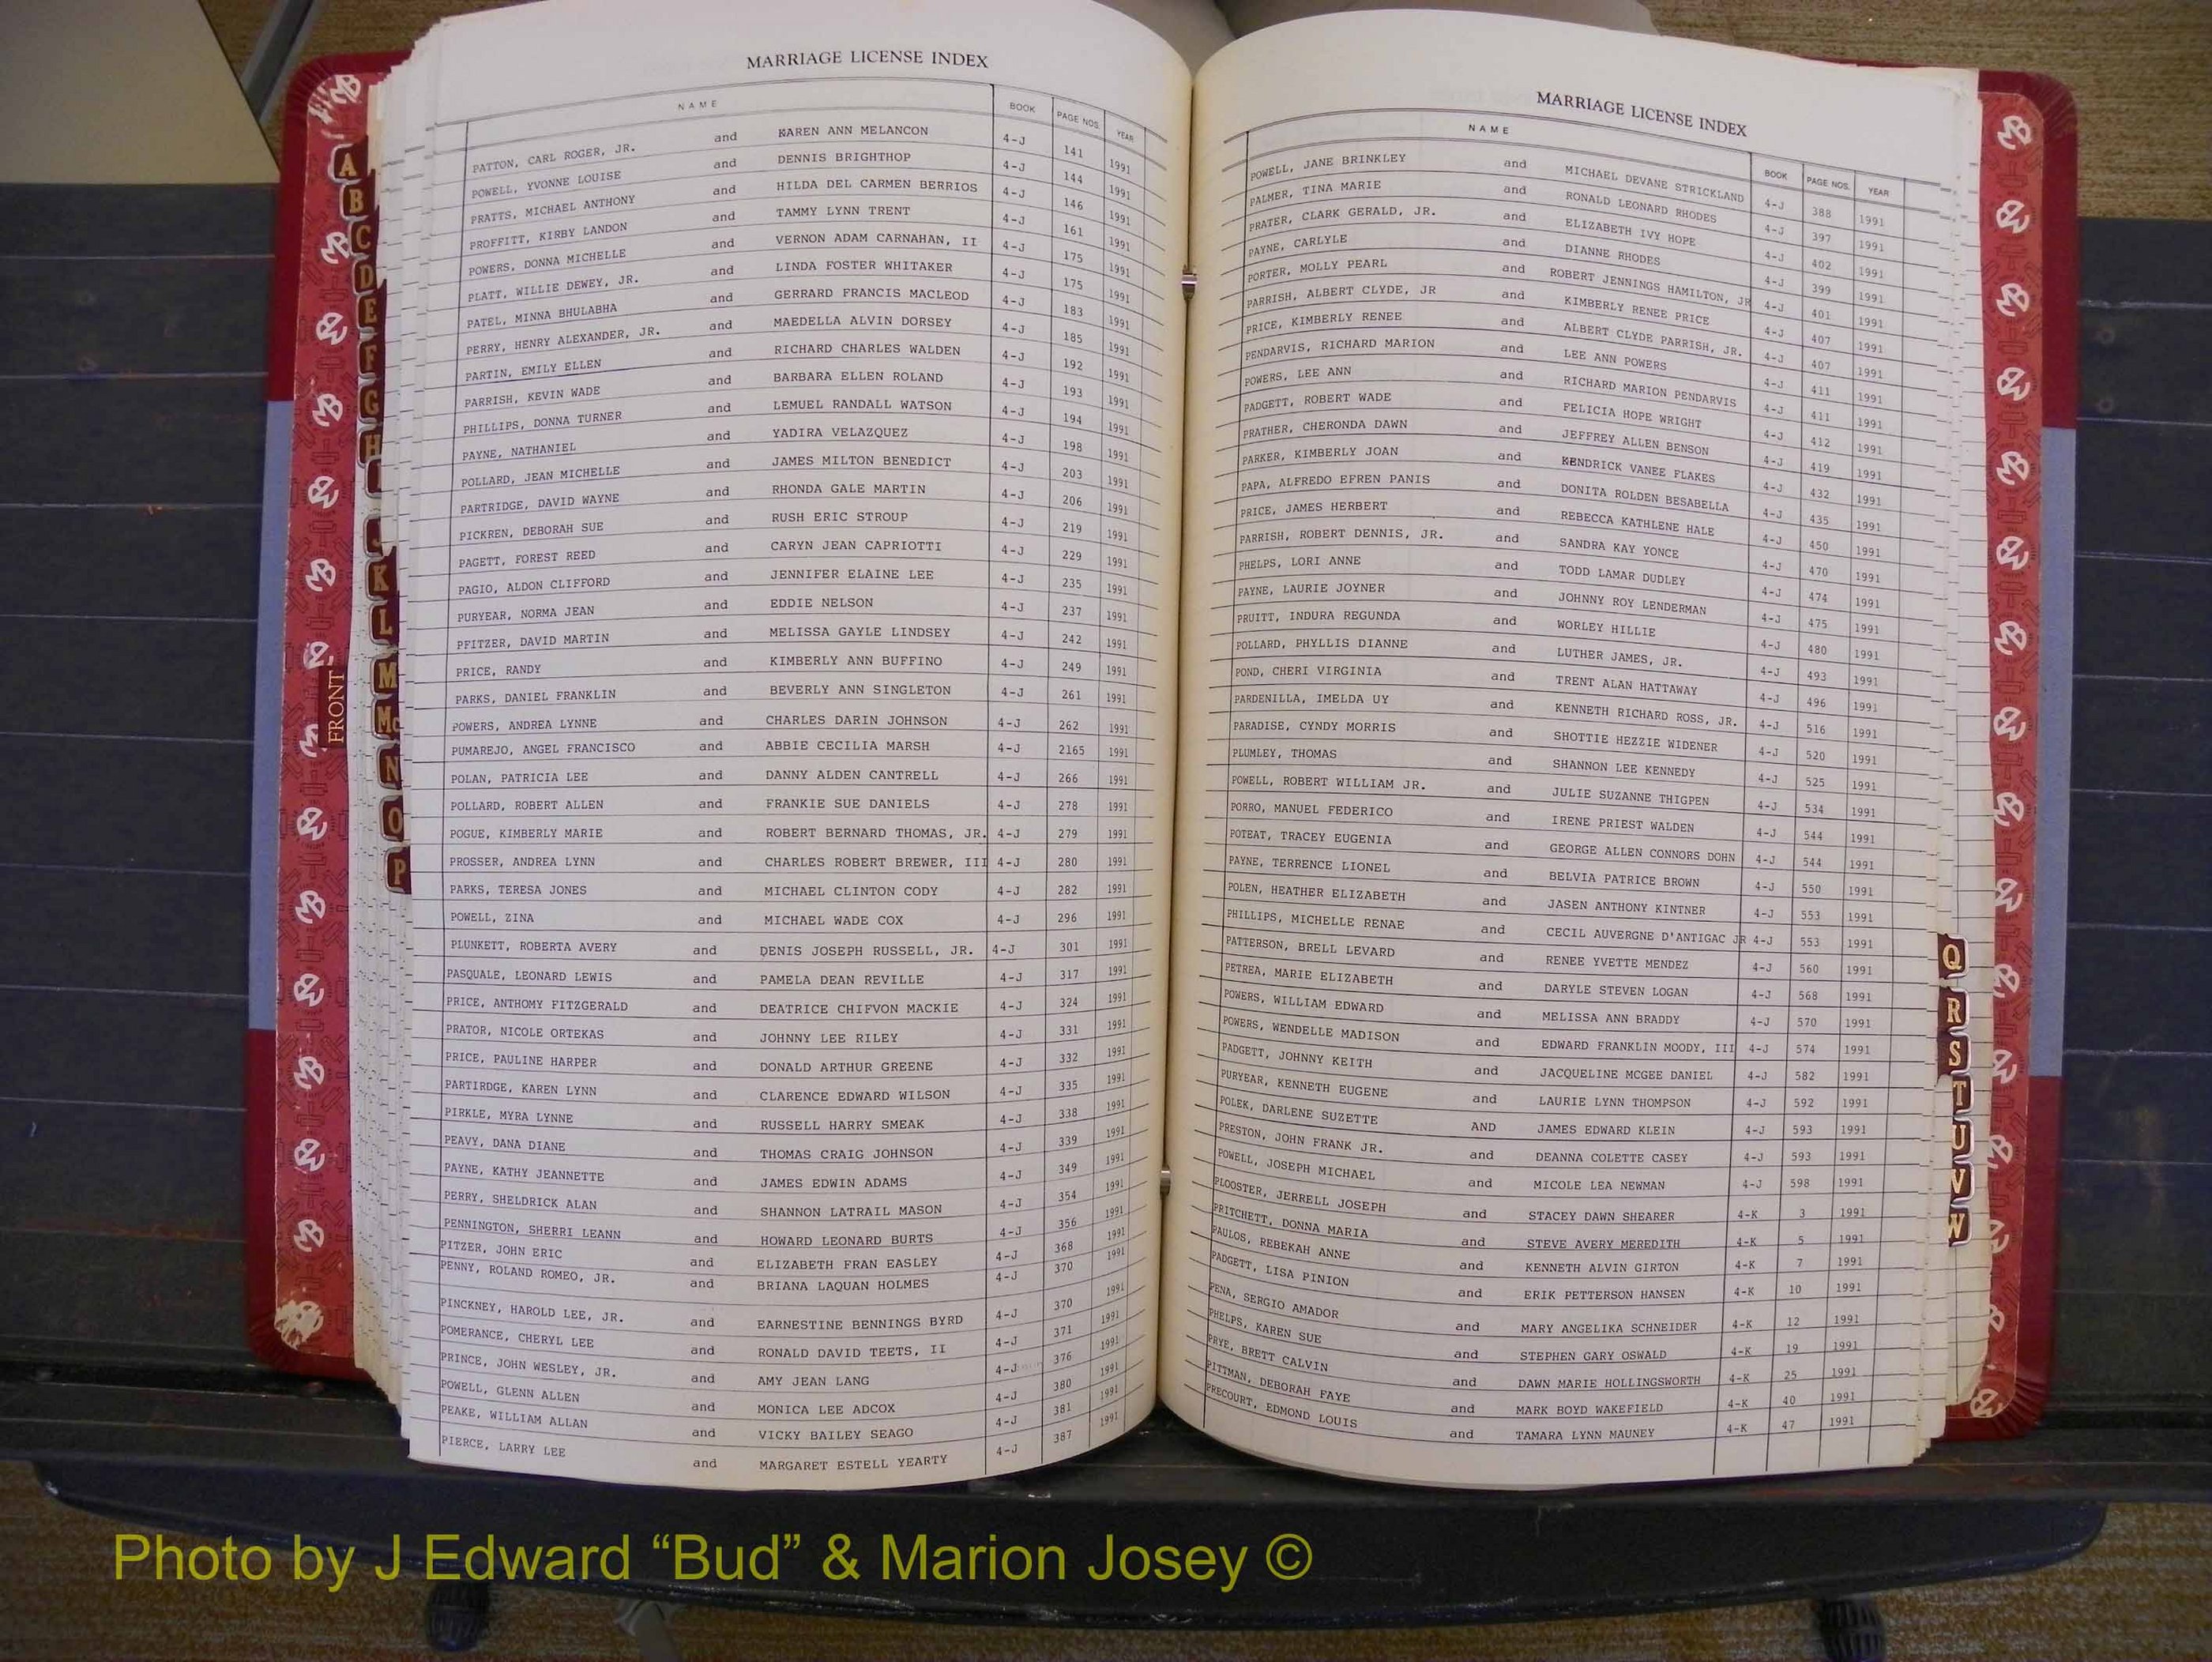 MARRIAGE LICENSE INDEX
NAME BOOK PAGE NOS. YEAR
PATTON, CARL ROGER, JR. and KAREN ANN MELANCON 4-J 141 1991
POWELL, YVONNE LOUISE and DENNIS BRIGHTHOP 4-J 144 1991
PRATTS, MICHAEL ANTHONY and HILDA DEL CARMEN BERRIOS 4-J 146 1991
PROFFITT, KIRBY LANDON and TAMMY LYNN TRENT 4-J 161 1991
POWERS, DONNA MICHELLE and VERNON ADAM CARNAHAN, II 4-J 175 1991
PLATT, WILLIE DEWEY, JR. and LINDA FOSTER WHITAKER 4-J 175 1991
PATEL, MINNA BHULABHA and GERRARD FRANCIS MACLEOD 4-J 183 1991
PERRY, HENRY ALEXANDER, JR. and MAEDELLA ALVIN DORSEY 4-J 185 1991
PARTIN, EMILY ELLEN and RICHARD CHARLES WALDEN 4-J 192 1991
PARRISH, KEVIN WADE and BARBARA ELLEN ROLAND 4-J 193 1991
PHILLIPS, DONNA TURNER and LEMUEL RANDALL WATSON 4-J 194 1991
PAYNE, NATHANIEL and YADIRA VELAZQUEZ 4-J 198 1991
POLLARD, JEAN MICHELLE and JAMES MILTON BENEDICT 4-J 203 1991
PARTRIDGE, DAVID WAYNE and RHONDA GALE MARTIN 4-J 206 1991
PICKREN, DEBORAH SUE and RUSH ERIC STROUP 4-J 219 1991
PAGETT, FOREST REED and CARYN JEAN CAPRIOTTI 4-J 229 1991
PAGIO, ALDON CLIFFORD and JENNIFER ELAINE LEE 4-J 235 1991
PURYEAR, NORMA JEAN and EDDIE NELSON 4-J 237 1991
PFITZER, DAVID MARTIN and MELISSA GAYLE LINDSEY 4-J 242 1991
PRICE, RANDY and KIMBERLY ANN BUFFINO 4-J 249 1991
PARKS, DANIEL FRANKLIN and BEVERLY ANN SINGLETON 4-J 261 1991
POWERS, ANDREA LYNNE and CHARLES DARIN JOHNSON 4-J 262 1991
PUMAREJO, ANGEL FRANCISCO and ABBIE CECILIA MARSH 4-J 2165 1991
POLAN, PATRICIA LEE and DANNY ALDEN CANTRELL 4-J 266 1991
POLLARD, ROBERT ALLEN and FRANKIE SUE DANIELS 4-J 278 1991
POGUE, KIMBERLY MARIE and ROBERT BERNARD THOMAS, JR. 4-J 279 1991
PROSSER, ANDREA LYNN and CHARLES ROBERT BREWER, III 4-J 280 1991
PARKS, TERESA JONES and MICHAEL CLINTON CODY 4-J 282 1991
POWELL, ZINA and MICHAEL WADE COX 4-J 296 1991
PLUNKETT, ROBERTA AVERY and DENIS JOSEPH RUSSELL, JR. 4-J 301 1991
PASQUALE, LEONARD LEWIS and PAMELA DEAN REVILLE 4-J 317 1991
PRICE, ANTHOMY FITZGERALD and DEATRICE CHIFVON MACKIE 4-J 324 1991
PRATOR, NICOLE ORTEKAS and JOHNNY LEE RILEY 4-J 331 1991
PRICE, PAULINE HARPER and DONALD ARTHUR GREENE 4-J 332 1991
PARTIRDGE, KAREN LYNN and CLARENCE EDWARD WILSON 4-J 335 1991
PIRKLE, MYRA LYNNE and RUSSELL HARRY SMEAK 4-J 338 1991
PEAVY, DANA DIANE and THOMAS CRAIG JOHNSON 4-J 339 1991
PAYNE, KATHY JEANNETTE and JAMES EDWIN ADAMS 4-J 349 1991
PERRY, SHELDRICK ALAN and SHANNON LATRAIL MASON 4-J 354 1991
PENNINGTON, SHERRI LEANN and HOWARD LEONARD BURTS 4-J 356 1991
PITZER, JOHN ERIC and ELIZABETH FRAN EASLEY 4-J 368 1991
PENNY, ROLAND ROMEO, JR. and BRIANA LAQUAN HOLMES 4-J 370 1991
PINCKNEY, HAROLD LEE, JR. and EARNESTINE BENNINGS BYRD 4-J 370 1991
POMERANCE, CHERYL LEE and RONALD DAVID TEETS, II 4-J 371 1991
PRINCE, JOHN WESLEY, JR. and AMY JEAN LANG 4-J 376 1991
POWELL, GLENN ALLEN and MONICA LEE ADCOX 4-J 380 1991
PEAKE, WILLIAM ALLAN and VICKY BAILEY SEAGO 4-J 381 1991
PIERCE, LARRY LEE and MARGARET ESTELL YEARTY 4-J 387 1991
MARRIAGE LICENSE INDEX
NAME BOOK PAGE NOS. YEAR
POWELL, JANE BRINKLEY and MICHAEL DEVANE STRICKLAND 4-J 388 1991
PALMER, TINA MARIE and RONALD LEONARD RHODES 4-J 397 1991
PRATER, CLARK GERALD, JR. and ELIZABETH IVY HOPE 4-J 402 1991
PAYNE, CARLYLE and DIANNE RHODES 4-J 399 1991
PORTER, MOLLY PEARL and ROBERT JENNINGS HAMILTON, JR 4-J 401 1991
PARRISH, ALBERT CLYDE, JR and KIMBERLY RENEE PRICE 4-J 407 1991
PRICE, KIMBERLY RENEE and ALBERT CLYDE PARRISH, JR. 4-J 407 1991
PENDARVIS, RICHARD MARION and LEE ANN POWERS 4-J 411 1991
POWERS, LEE ANN and RICHARD MARION PENDARVIS 4-J 411 1991
PADGETT, ROBERT WADE and FELICIA HOPE WRIGHT 4-J 412 1991
PRATHER, CHERONDA DAWN and JEFFREY ALLEN BENSON 4-J 419 1991
PARKER, KIMBERLY JOAN and KENDRICK VANEE FLAKES 4-J 432 1991
PAPA, ALFREDO EFREN PANIS and DONITA ROLDEN BESABELLA 4-J 435 1991
PRICE, JAMES HERBERT and REBECCA KATHLENE HALE 4-J 450 1991
PARRISH, ROBERT DENNIS, JR. and SANDRA KAY YONCE 4-J 470 1991
PHELPS, LORI ANNE and TODD LAMAR DUDLEY 4-J 474 1991
PAYNE, LAURIE JOYNER and JOHNNY ROY LENDERMAN 4-J 475 1991
PRUITT, INDURA REGUNDA and WORLEY HILLIE 4-J 480 1991
POLLARD, PHYLLIS DIANNE and LUTHER JAMES, JR. 4-J 493 1991
POND, CHERI VIRGINIA and TRENT ALAN HATTAWAY 4-J 496 1991
PARDENILLA, IMELDA UY and KENNETH RICHARD ROSS, JR. 4-J 516 1991
PARADISE, CYNDY MORRIS and SHOTTIE HEZZIE WIDENER 4-J 520 1991
PLUMLEY, THOMAS and SHANNON LEE KENNEDY 4-J 525 1991
POWELL, ROBERT WILLIAM JR. and JULIE SUZANNE THIGPEN 4-J 534 1991
PORRO, MANUEL FEDERICO and IRENE PRIEST WALDEN 4-J 544 1991
POTEAT, TRACEY EUGENIA and GEORGE ALLEN CONNORS DOHN 4-J 544 1991
PAYNE, TERRENCE LIONEL and BELVIA PATRICE BROWN 4-J 550 1991
POLEN, HEATHER ELIZABETH and JASEN ANTHONY KINTNER 4-J 553 1991
PHILLIPS, MICHELLE RENAE and CECIL AUVERGNE D'ANTIGAC JR 4-J 553 1991
PATTERSON, BRELL LEVARD and RENEE YVETTE MENDEZ 4-J 560 1991
PETREA, MARIE ELIZABETH and DARYLE STEVEN LOGAN 4-J 568 1991
POWERS, WILLIAM EDWARD and MELISSA ANN BRADDY 4-J 570 1991
POWERS, WENDELLE MADISON and EDWARD FRANKLIN MOODY, III 4-J 574 1991
PADGETT, JOHNNY KEITH and JACQUELINE MCGEE DANIEL 4-J 582 1991
PURYEAR, KENNETH EUGENE and LAURIE LYNN THOMPSON 4-J 592 1991
POLEK, DARLENE SUZETTE AND JAMES EDWARD KLEIN 4-J 593 1991
PRESTON, JOHN FRANK JR. and DEANNA COLETTE CASEY 4-J 593 1991
POWELL, JOSEPH MICHAEL and MICOLE LEA NEWMAN 4-J 598 1991
PLOOSTER, JERRELL JOSEPH and STACEY DAWN SHEARER 4-K 3 1991
PRITCHETT, DONNA MARIA and STEVE AVERY MEREDITH 4-K 5 1991
PAULOS, REBEKAH ANNE and KENNETH ALVIN GIRTON 4-K 7 1991
PADGETT, LISA PINION and ERIK PETTERSON HANSEN 4-K 10 1991
PENA, SERGIO AMADOR and MARY ANGELIKA SCHNEIDER 4-K 12 1991
PHELPS, KAREN SUE and STEPHEN GARY OSWALD 4-K 19 1991
PRYE, BRETT CALVIN and DAWN MARIE HOLLINGSWORTH 4-K 25 1991
PITTMAN, DEBORAH FAYE and MARK BOYD WAKEFIELD 4-K 40 1991
PRECOURT, EDMOND LOUIS and TAMARA LYNN MAUNEY 4-K 47 1991
A
B
C
D
E
F
G
H
J
K
L
M
Mc
N
O
P
FRONT
Q
R
S
T
U
V
W
Photo by J Edward “Bud” & Marion Josey ©